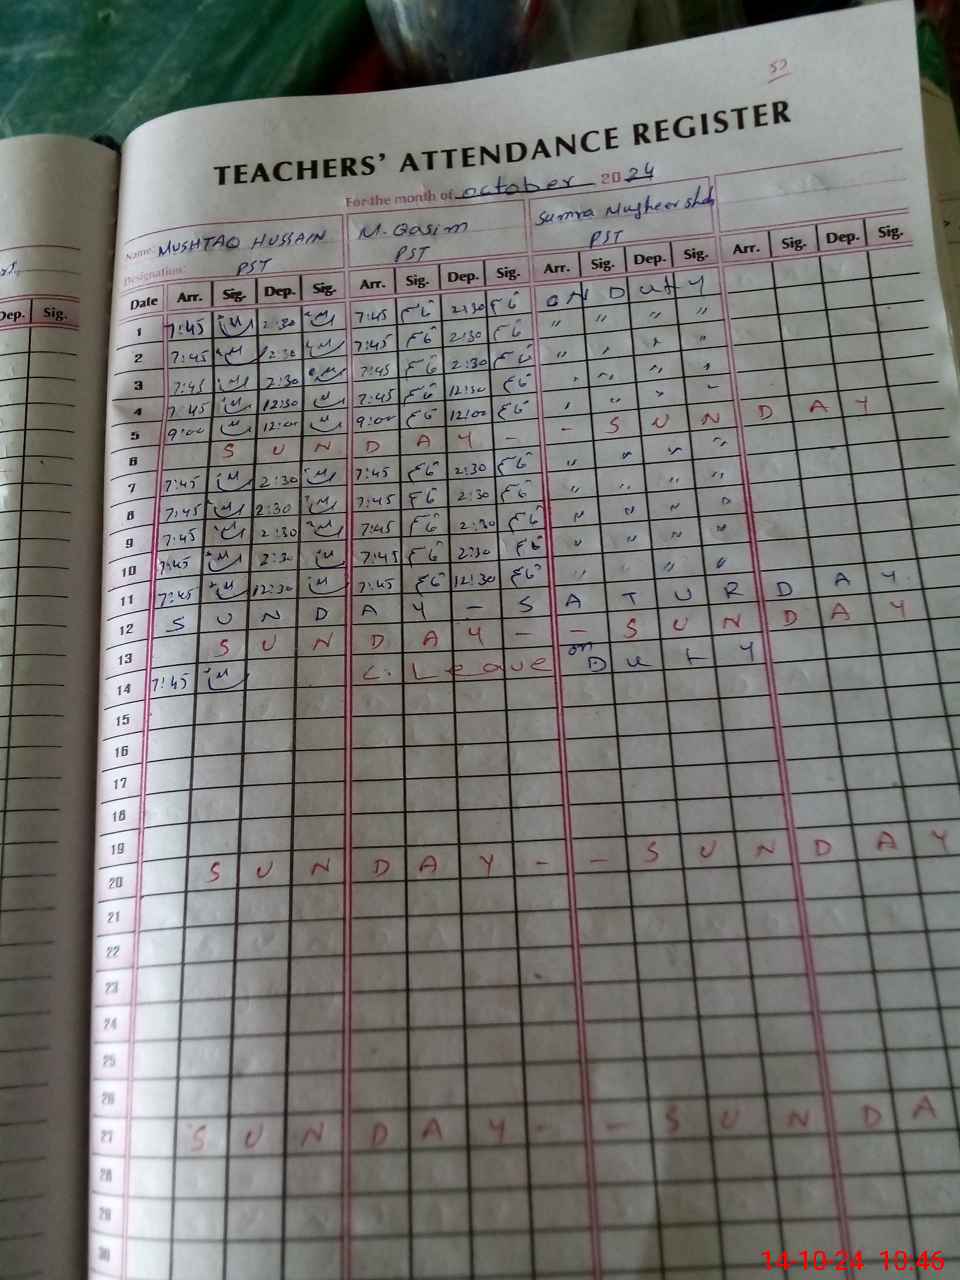 52
TEACHERS' ATTENDANCE REGISTER
For the month of October 2024
Name: MUSHTAQ HUSSAIN M. Qasim Sumra Mugheer
Designation: PST PST PST
Date Arr. Sig. Dep. Sig. Arr. Sig. Dep. Sig. Arr. Sig. Dep. Sig. Arr. Sig. Dep. Sig.
Dep. Sig.
1 7:45 2:30 7:45 2:30 ON DUTY
2 7:45 2:30 7:45 2:30 " " " "
3 7:45 2:30 7:45 2:30 " " " "
4 7:45 12:30 7:45 12:30 " " " "
5 9:00 12:00 9:00 12:00 " " " "
6 SUNDAY - - SUNDAY
7 7:45 2:30 7:45 2:30 " " " "
8 7:45 2:30 7:45 2:30 " " " "
9 7:45 2:30 7:45 2:30 " " " "
10 7:45 2:30 7:45 2:30 " " " "
11 7:45 12:30 7:45 12:30 " " " "
12 SUNDAY - SATURDAY
13 SUNDAY - - SUNDAY
14 7:45 C. Leave on Duty
15
16
17
18
19
20 SUNDAY - - SUNDAY
21
22
23
24
25
26
27 SUNDAY - - SUNDA
28
29
30
14-10-24 10:46